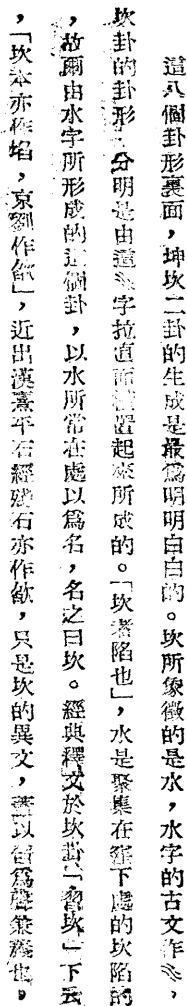 這八個卦形裏面，坤坎二卦的生成是最爲明明白白的。坎所象徵的是水，水字的古文作，
坎卦的卦形分明是由這字拉直而橫置起來所成的。「坎者陷也」，水是聚集在窪下處的坎陷的
，故爾由水字所形成的這個卦，以水所常在處以爲名，名之曰坎。經典釋文於坎卦「習坎」下云
，「坎本亦作埳，京劉作欿」，近出漢熹平石經殘石亦作欿，只是坎的異文，蓋以臽爲聲兼義也。